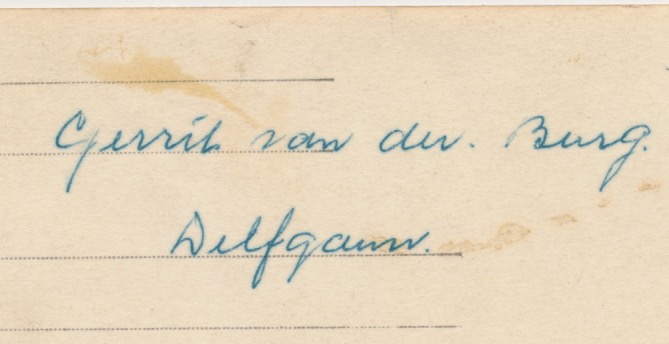 Gerrit van der. Burg.
Delfgauw.